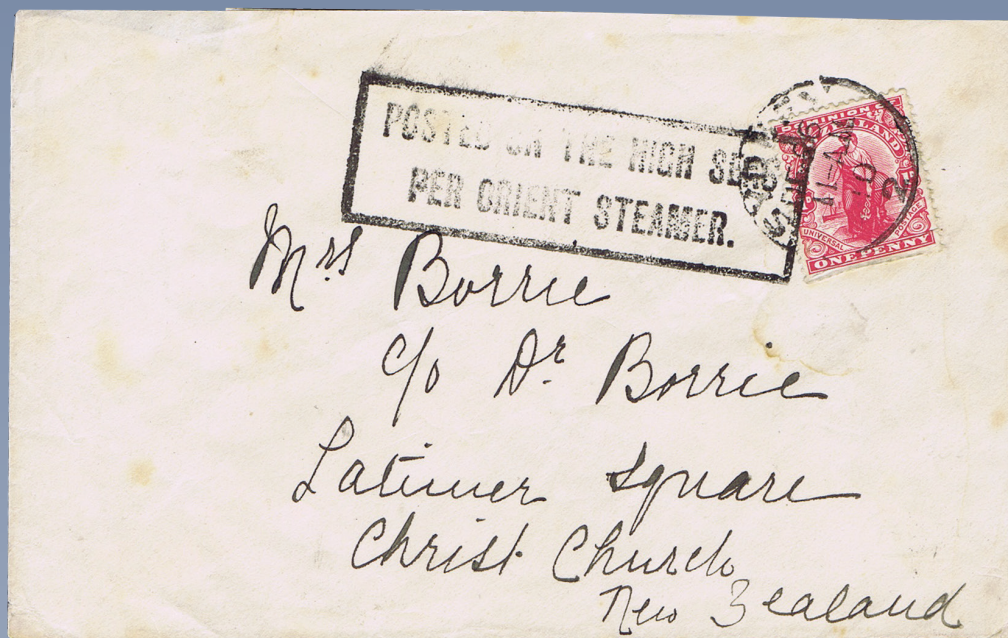 POSTED ON THE HIGH SEAS
PER ORIENT STEAMER.
SYDNEY
11-AM
DOMINION OF
ZEALAND
UNIVERSAL POSTAGE
ONE PENNY
Mrs Borrie
c/o Dr Borrie
Latimer Square
Christ Church
New Zealand